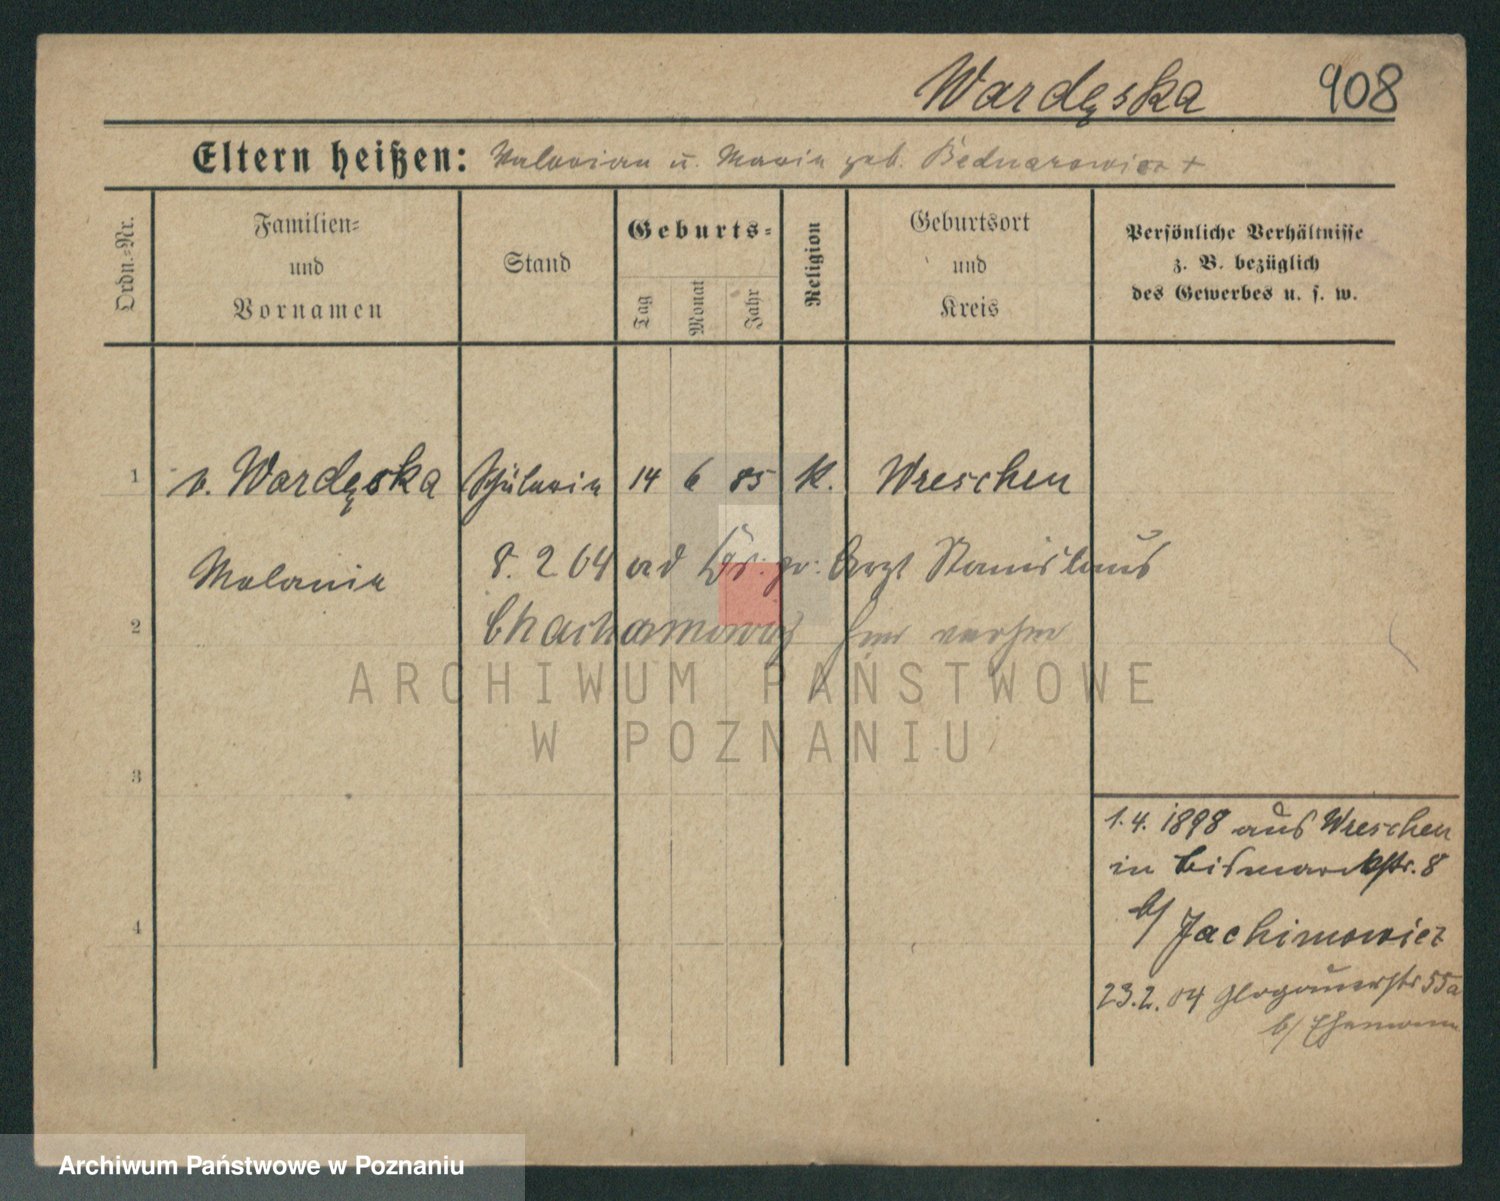 Wardęska 908
Eltern heißen: Valerian u. Maria geb. Bednarowicz +
Ordn.=Nr.
Familien=
und
Vornamen
Stand
Geburts=
Tag
Monat
Jahr
Religion
Geburtsort
und
Kreis
Persönliche Verhältnisse
z. B. bezüglich
des Gewerbes u. s. w.
1 v. Wardęska Schülerin 14 6 85 K. Wreschen
Melania 8. 2 04 Dr. pr. Arzt Stanislaus
2 Chachamowicz hier
ARCHIWUM PAŃSTWOWE
W POZNANIU
3
1.4. 1898 aus Wreschen
in Bismarckstr. 8
b/ Jachimowicz
4
23.2. 04 Glogauerstr 55a
b/ Ehemann
Archiwum Państwowe w Poznaniu